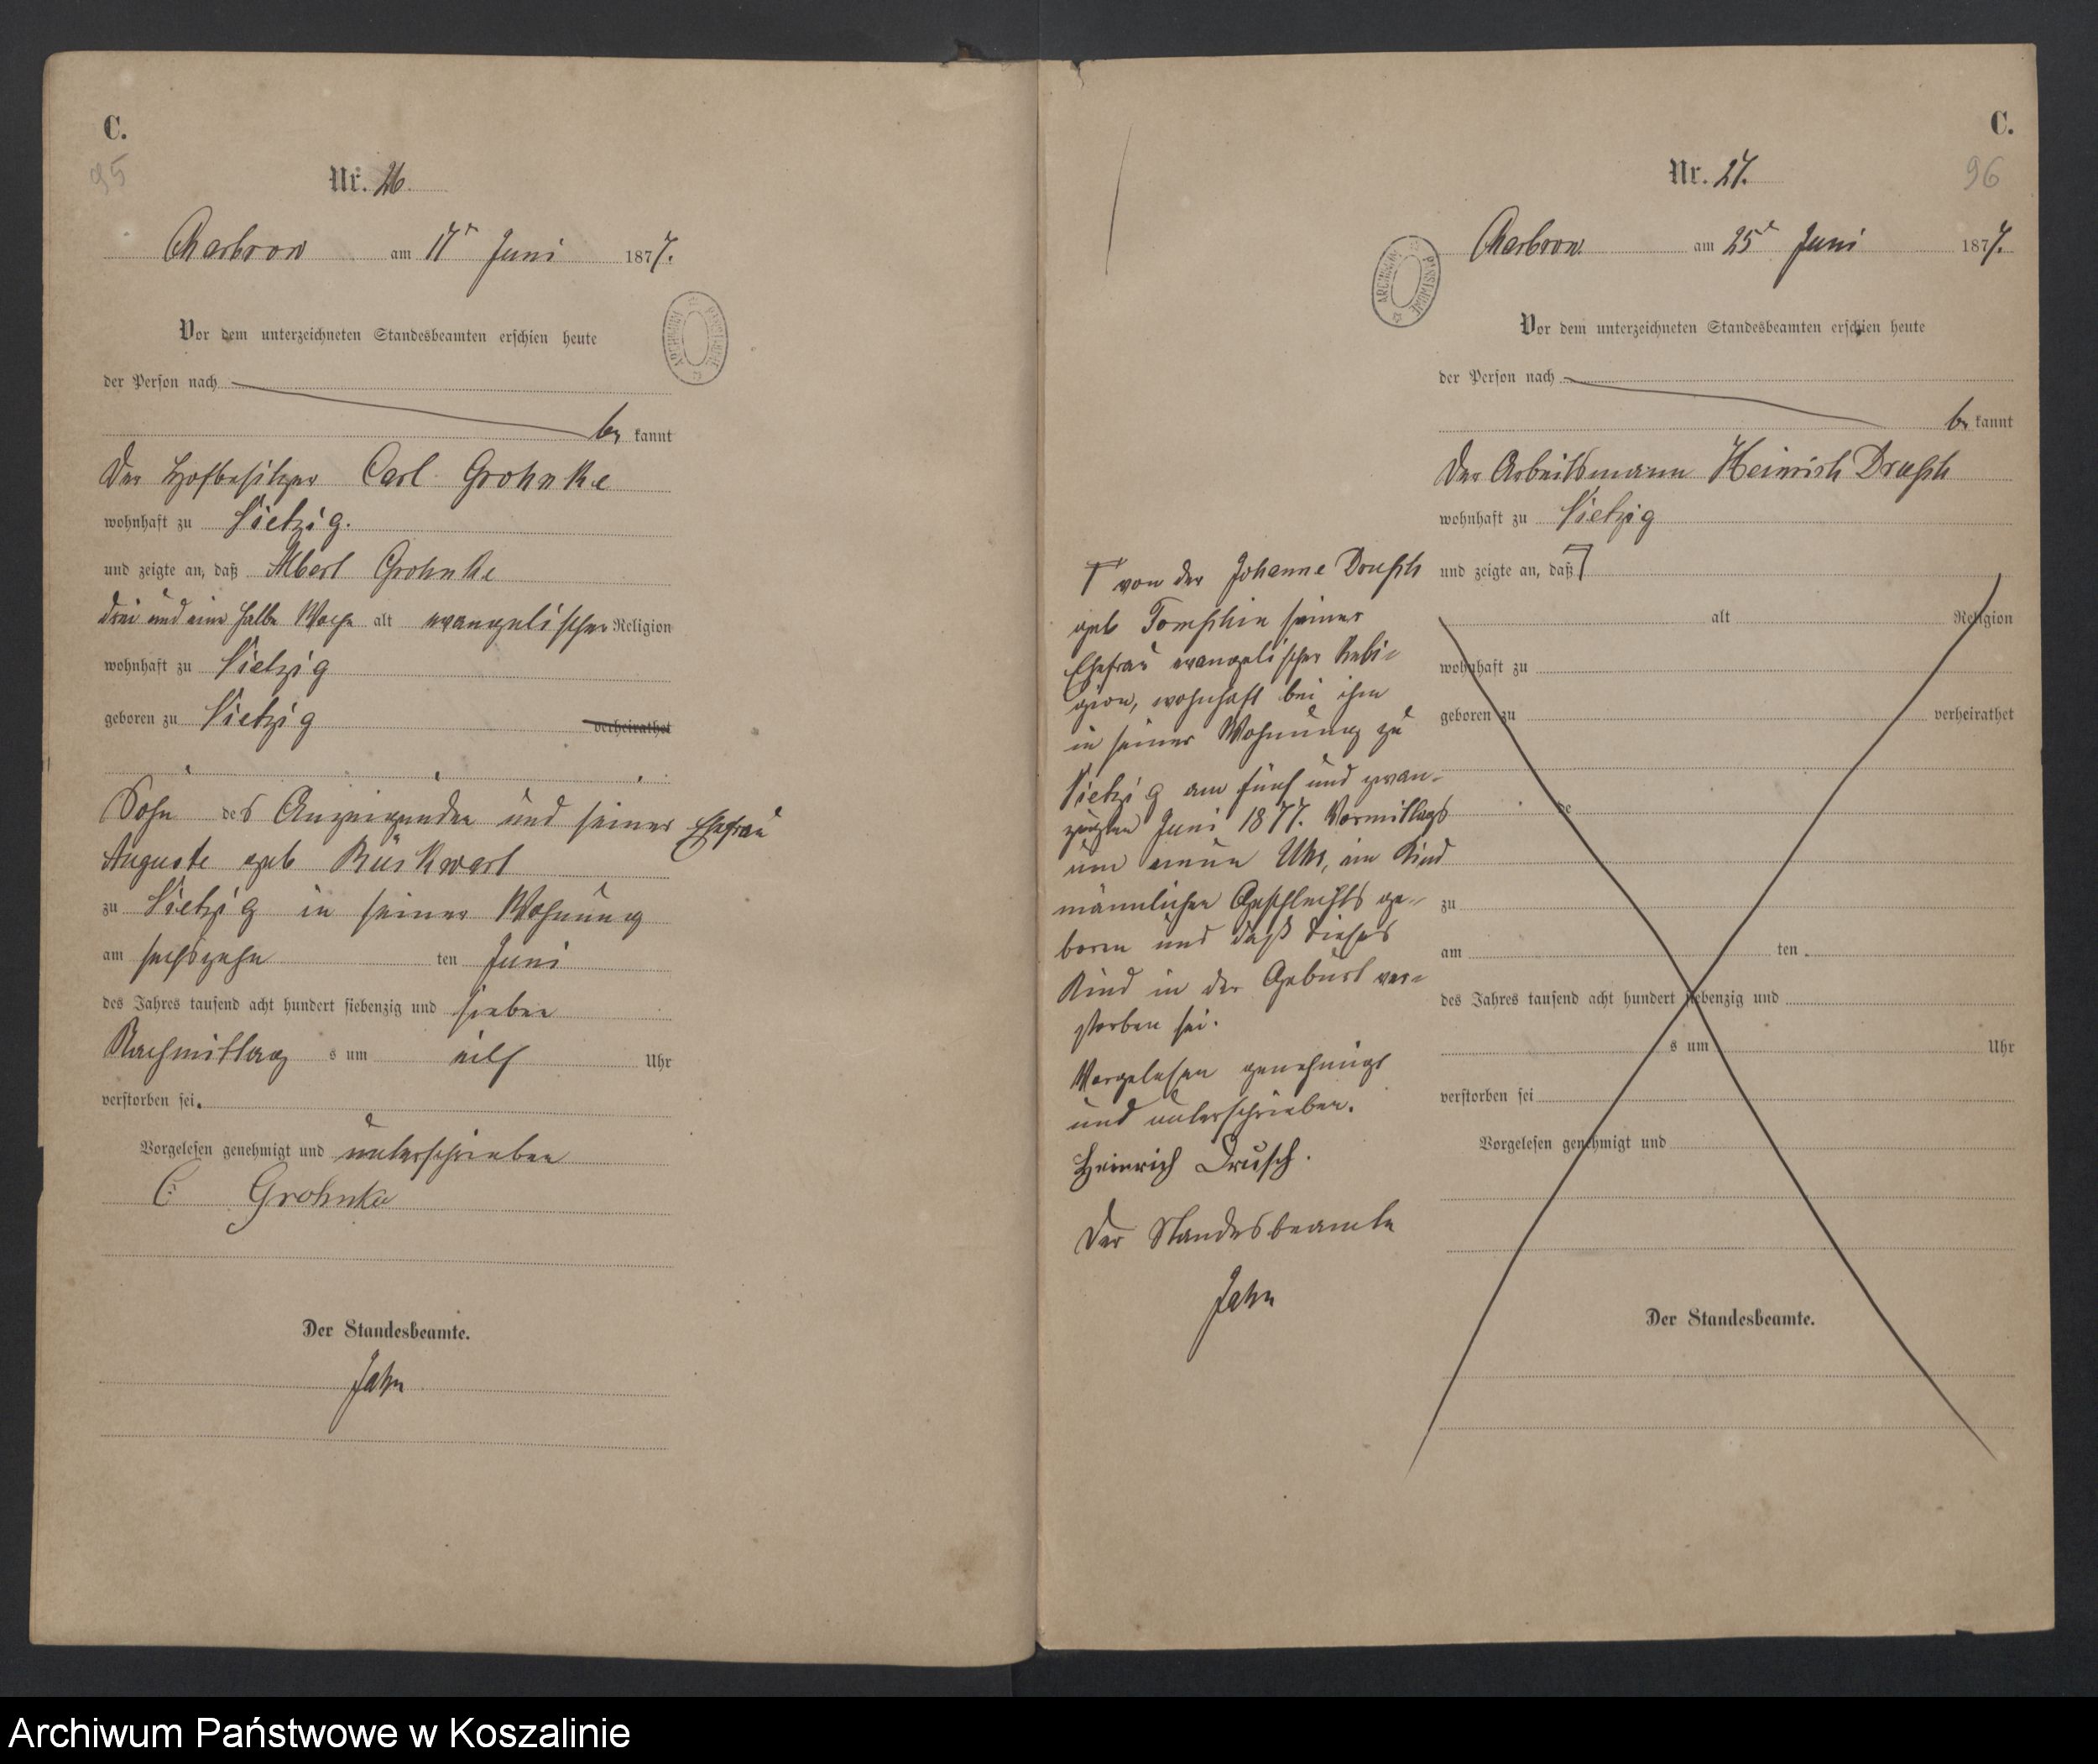 C.
95
Nr. 26.
Charbrow am 17t Juni 1877.
ARCHIWUM PAŃSTWOWE
Vor dem unterzeichneten Standesbeamten erschien heute
der Person nach
be kannt
Der Hofbesitzer Carl Grohnke
wohnhaft zu Vietzig.
und zeigte an, daß Albert Grohnke
drei und eine halbe Woche alt evangelischer Religion
wohnhaft zu Vietzig
geboren zu Vietzig verheirathet
Sohn des Anzeigenden und seiner Ehefrau
Auguste geb Rückwart
zu Vietzig in seiner Wohnung
am sechszehn ten Juni
des Jahres tausend acht hundert siebenzig und sieben
Nachmittag s um eilf Uhr
verstorben sei.
Vorgelesen genehmigt und unterschrieben
C. Grohnke
Der Standesbeamte.
Jahn
C.
96
Nr. 27.
Charbrow. am 25t Juni 1877.
ARCHIWUM PAŃSTWOWE
Vor dem unterzeichneten Standesbeamten erschien heute
der Person nach
be kannt
Der Arbeitsmann Heinrich Drusch
wohnhaft zu Vietzig
und zeigte an, daß
alt Religion
wohnhaft zu
geboren zu verheirathet
de
zu
am ten
des Jahres tausend acht hundert siebenzig und
s um Uhr
verstorben sei
Vorgelesen genehmigt und
Der Standesbeamte.
von der Johanne Drusch
geb seiner
Ehefrau evangelischer Reli-
gion, wohnhaft bei ihm
in seiner Wohnung zu
Vietzig am fünf und zwan-
zigsten Juni 1877. Vormittags
um neun Uhr, ein Kind
männlichen Geschlechts ge-
boren und daß dieses
Kind in der Geburt ver-
storben sei.
Vorgelesen genehmigt
und unterschrieben.
Heinrich Drusch.
Der Standesbeamte
Jahn
Archiwum Państwowe w Koszalinie